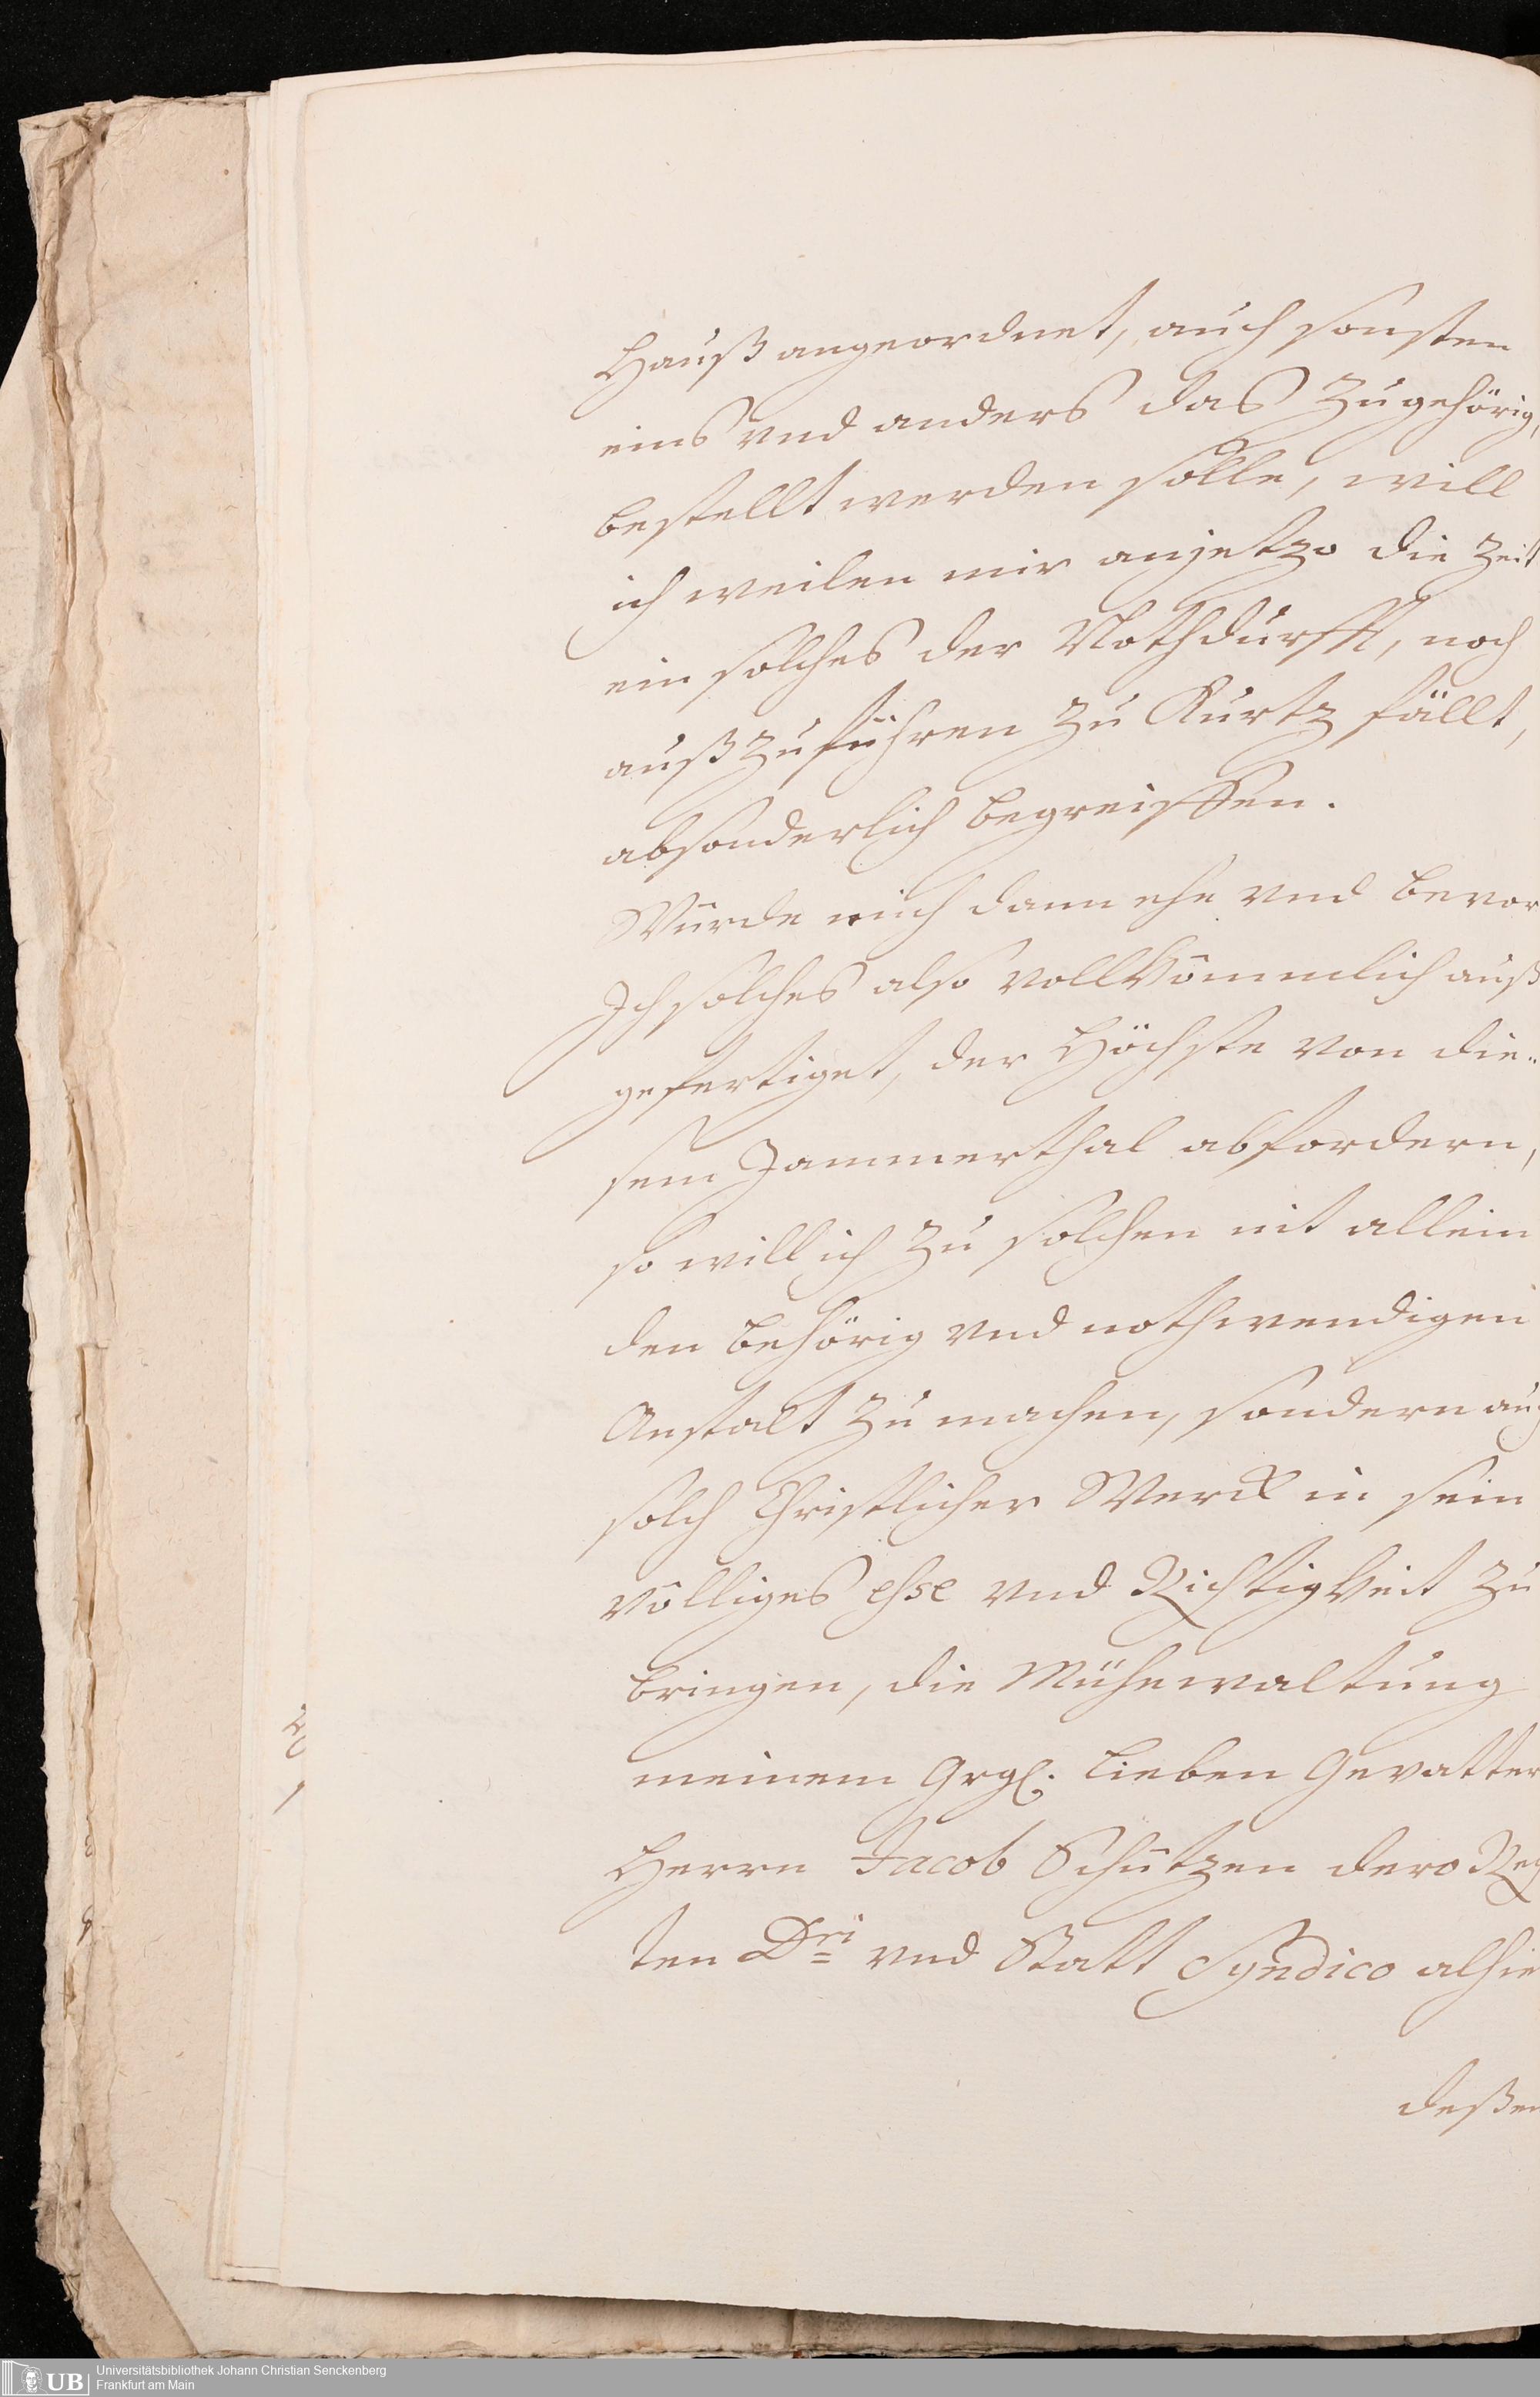 Hauß angeordnet, auch sonsten
eins vnd anders das Zugehörig,
bestellt werden solle, will
ich weilen mir anjetzo die Zeit
ein solches der Nothdurfft, noch
außzuführen zu Kurtz fällt,
absonderlich begreiffen.
Würde mich dann ehe vnd bevor
Ich solches also vollkömmlich auß
gefertiget, der Höchste von die..
sem Jammerthal abfordern,
so will ich zu solchen nit allein
den behörig vnd nothwendigen
Anstalt zu machen, sondern auch
solch Christlicher Werck in sein
völliges esse vnd Richtigkeit zu
bringen, die Mühewaltung
meinem Grgl. lieben Gevatter
Herrn Jacob Schützen dero Rech
ten Dri vnd Statt Syndico alhie
deßen
UB
Universitätsbibliothek Johann Christian Senckenberg
Frankfurt am Main